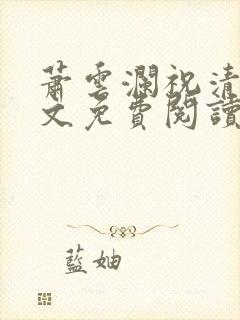 蕭雲瀾祝清
文免費閱讀
藍妯